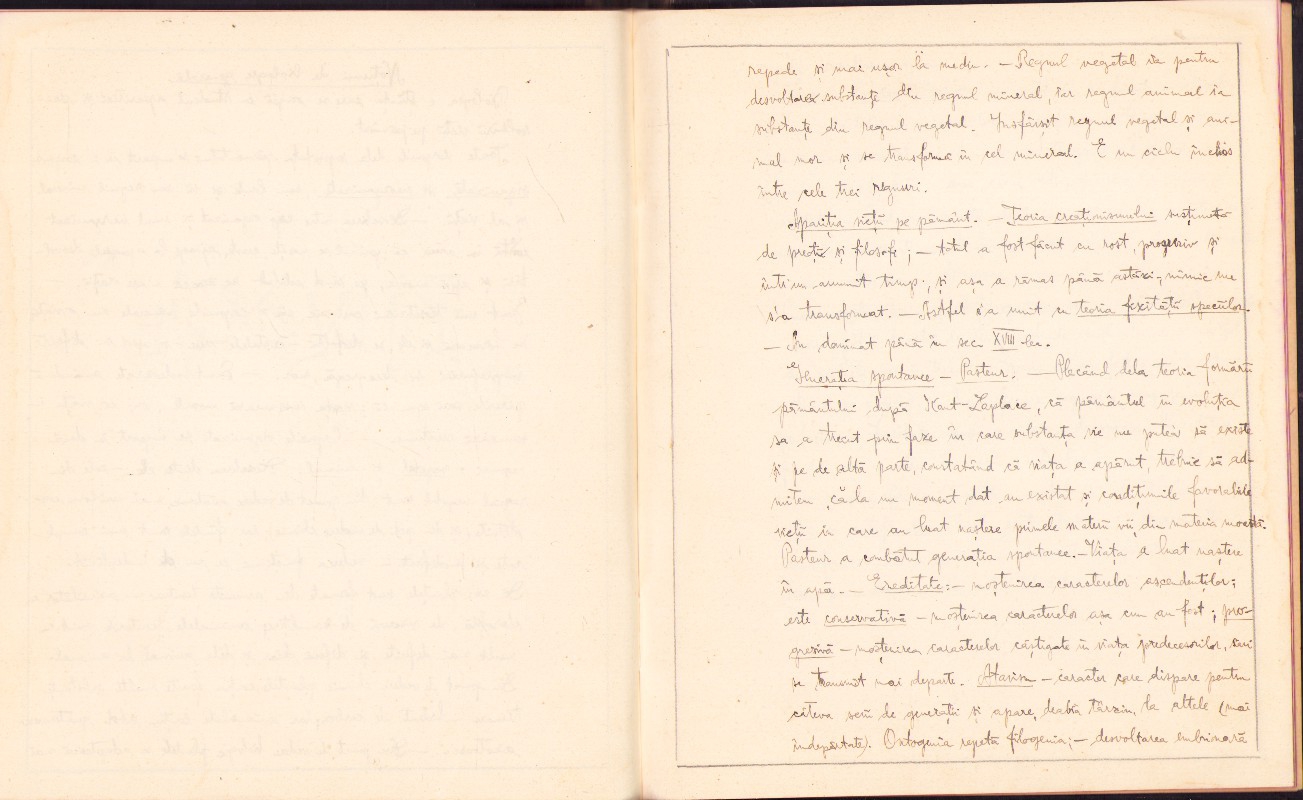 repede și mai ușor la mediu. — Regnul vegetal ia pentru
desvoltarea substanțe din regnul mineral, iar regnul animal ia
substanțe din regnul vegetal. Însfârșit regnul vegetal și ani-
mal mor și se transformă în cel mineral. E un ciclu închis
între cele trei regnuri.
Apariția vieții pe pământ. — Teoria creaționismului susținută
de preoți și filosofi; — totul a fost făcut cu rost, progresiv și
într'un anumit timp, și așa a rămas până astăzi, nimic nu
s'a transformat. — Astfel s'a unit cu teoria fixității speciilor.
— Au dominat până în sec. XVIII-lea.
Generația spontanee — Pasteur. — Plecând dela teoria formării
pământului după Kant-Laplace, că pământul în evoluția
sa a trecut prin faze în care substanța vie nu putea să existe
și pe de altă parte, constatând că viața a apărut, trebuie să ad-
mitem, că la un moment dat au existat și condițiunile favorabile
vieții în care au luat naștere primele materii vii, din materia moartă.
Pasteur a combătut generația spontanee. — Viața a luat naștere
în apă. — Ereditate: — moștenirea caracterelor ascendenților;
este conservativă — moștenirea caracterelor așa cum au fost; pro-
gresivă — moștenirea caracterelor câștigate în viața predecesorilor,
se transmit mai departe. Atavism — caracter care dispare pentru
câteva serii de generații și apare, deabia târziu, la altele (mai
îndepărtate). Ontogenia repetă filogenia; — desvoltarea embrionară